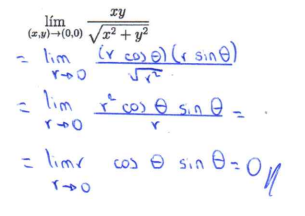 lím (x,y)→(0,0) xy / √x² + y²
= lim r→0 (r cos θ)(r sin θ) / √r²
= lim r→0 r² cos θ sin θ / r =
= lim r r→0 cos θ sin θ = 0